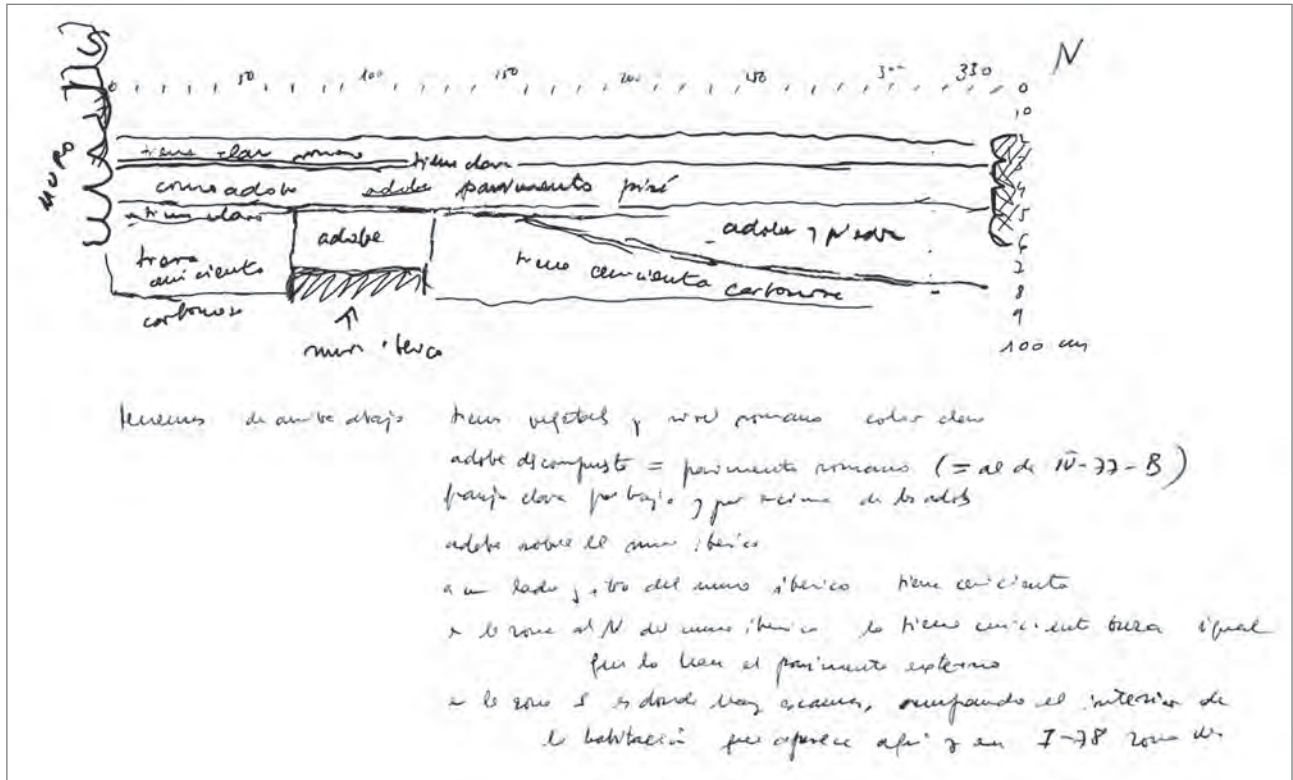 N
0 50 100 150 200 250 300 330 0
10
MURO
tierra clar romano tierra clara
como adobe adobe pavimento pisé
4
tierra clara
5
adobe
adobe y piedra
6
tierra cenicienta
tierra cenicienta carbonosa
7
8
carbonoso
9
muro iberico
100 cm
tenemos de arriba abajo tierra vegetal y nivel romano color claro
adobe descompuesto = pavimento romano (= al de IV-77-B)
franja clara por bajo y por encima de los adobes
adobe sobre el muro iberico
a un lado y otro del muro iberico tierra cenicienta
a la zona al N del muro iberico la tierra cenicienta igual
que lo hace el pavimento externo
a la zona S es donde hay ocupando el interior de
la habitación que aparece aqui y en I-78 zona